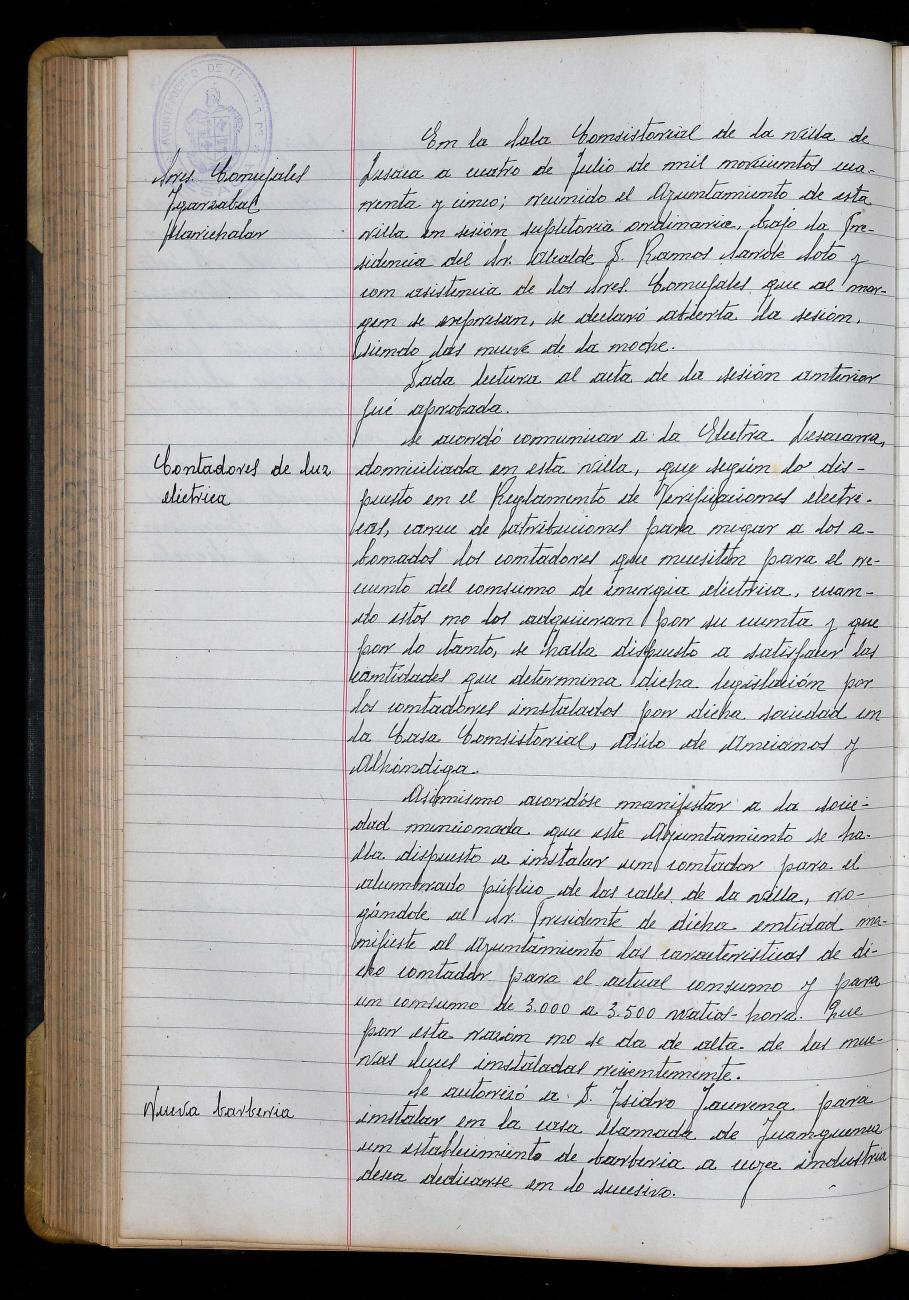 AYUNTAMIENTO DE
Sres. Concejales
Igarzabal
Marichalar
En la Sala Consistorial de la villa de
Lesaca a cuatro de Julio de mil novecientos cua-
renta y cinco; reunido el Ayuntamiento de esta
villa en sesión supletoria ordinaria, bajo la Pre-
sidencia del Sr. Alcalde D. Ramos Sarde Soto y
con asistencia de los Sres. Concejales que al mar-
gen se expresan, se declaró abierta la sesión,
siendo las nueve de la noche.
Dada lectura al acta de la sesión anterior
fué aprobada.
Contadores de luz
eléctrica
Se acordó comunicar a la Electra Lesacarra,
domiciliada en esta villa, que según lo dis-
puesto en el Reglamento de Verificaciones electri-
cas, carece de atribuciones para negar a los a-
bonados los contadores que necesiten para el re-
cuento del consumo de energia electrica, cuan-
do estos no los adquieran por su cuenta y que
por lo tanto, se halla dispuesto a satisfacer las
cantidades que determina dicha legislación por
los contadores instalados por dicha sociedad en
la Casa Consistorial, Asilo de Ancianos y
Alhóndiga.
Asimismo acordóse manifestar a la socie-
dad mencionada que este Ayuntamiento se ha-
lla dispuesto a instalar un contador para el
alumbrado público de las calles de la villa, ro-
gándole al Sr. Presidente de dicha entidad ma-
nifieste al Ayuntamiento las caracteristicas de di-
cho contador para el actual consumo y para
un consumo de 3.000 a 3.500 watios-hora. Que
por esta razón no se da de alta de las nue-
vas luces instaladas recientemente.
Nueva barberia
Se autorizó a D. Isidro Jaurena para
instalar en la casa llamada de Juanquenea
un establecimiento de barberia a cuya industria
desea dedicarse en lo sucesivo.